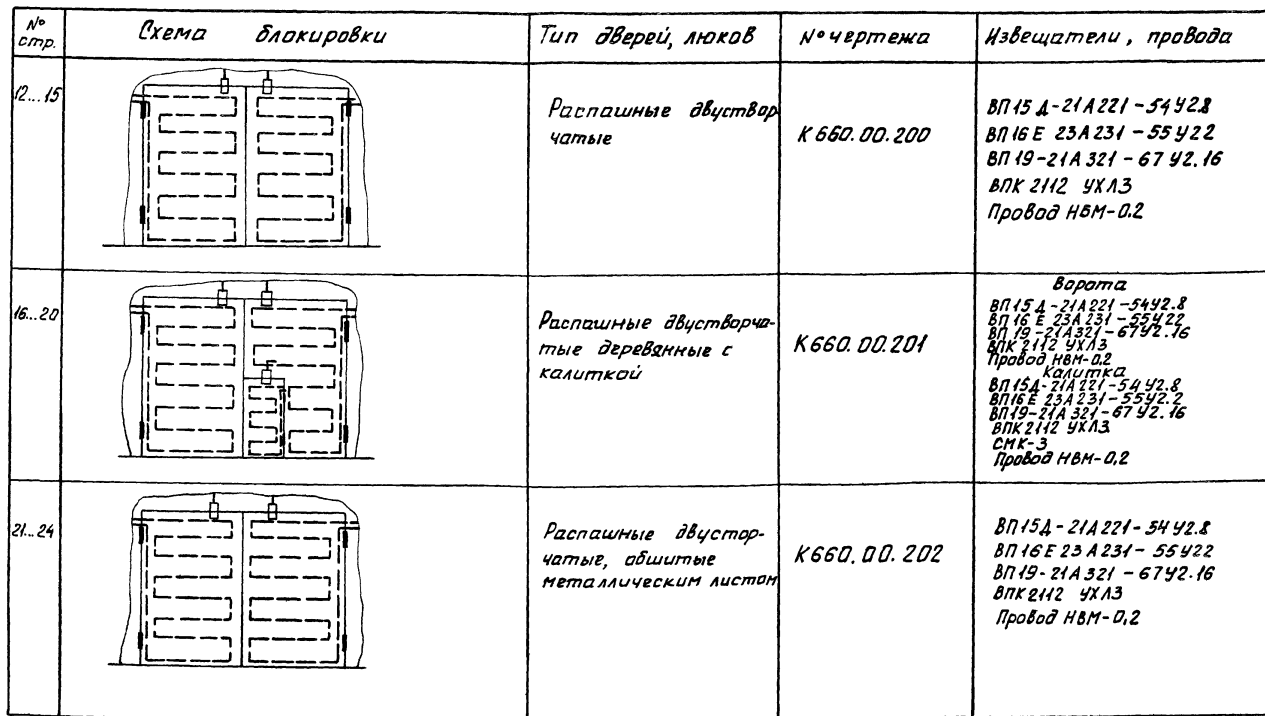 № стр.
Схема блокировки
Тип дверей, люков
№ чертежа
Извещатели, провода
12...15
Распашные двуствор
чатые
К 660.00.200
ВП15 Д-21А221-54У2.8
ВП16 Е 23А231-55У22
ВП19-21А321-67У2.16
ВПК 2112 УХЛ3
Провод НВМ-0.2
16...20
Распашные двустворча-
тые деревянные с
калиткой
К660.00.201
Ворота
ВП15 Д-21А221-54У2.8
ВП16 Е 23А231-55У22
ВП19-21А321-67У2.16
ВПК 2112 УХЛ3
Провод НВМ-0.2
Калитка
ВП15Д-21А221-54У2.8
ВП16Е 23А231-55У2.2
ВП19-21А321-67У2.16
ВПК2112 УХЛ3
СМК-3
Провод НВМ-0,2
21...24
Распашные двустор-
чатые, обшитые
металлическим листом
К660.00.202
ВП15Д-21А221-54У2.8
ВП16Е23А231-55У22
ВП19-21А321-67У2.16
ВПК2112 УХЛ3
Провод НВМ-0,2